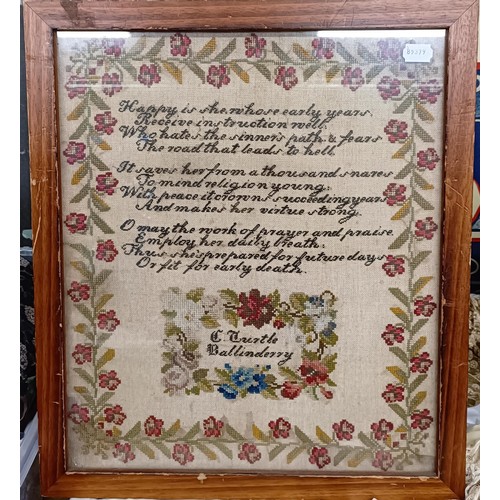 Happy is she, whose early years,
Receive instruction well;
Who hates the sinner's path, & fears
The road that leads to hell.
It saves her from a thousand snares
To mind religion young;
With peace it crowns succeeding years
And makes her virtue strong.
O may the work of prayer and praise
Employ her daily breath;
Thus she's prepared for future days
Or fit for early death.
C. Turtle
Ballinderry